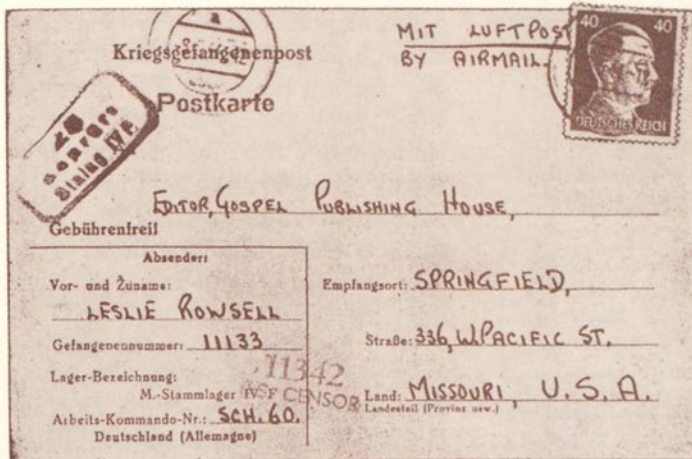 Kriegsgefangenenpost
Postkarte
MIT LUFTPOST
BY AIRMAIL.
40 40
DEUTSCHES REICH
28
Geprüft
Stalag
EDITOR, GOSPEL PUBLISHING HOUSE,
Gebührenfrei!
Absender:
Vor- und Zuname:
LESLIE ROWSELL
Gefangenennummer: 11133
Lager-Bezeichnung:
M.-Stammlager IVF
Arbeits-Kommando-Nr.: SCH. 60.
Deutschland (Allemagne)
11342
CENSOR
Empfangsort: SPRINGFIELD,
Straße: 336, W. PACIFIC ST.
Land: MISSOURI, U. S. A.
Landesteil (Provinz usw.)